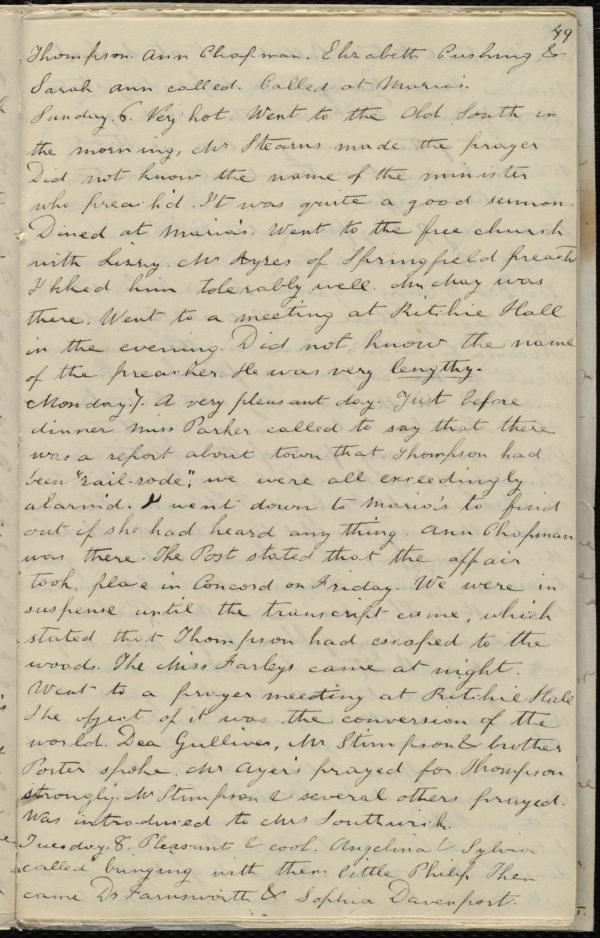 49
Thompson. Ann Chapman. Elizabeth Cushing &
Sarah Ann called. Called at Maria's.
Sunday. 6. Very hot. Went to the Old South in
the morning, Mr Stearns made the prayer
Did not know the name of the minister
who preach'd. It was quite a good sermon.
Dined at Maria's. Went to the free church
with Lizzy. Mr Ayres of Springfield preach'd
I liked him tolerably well. Mr May was
there. Went to a meeting at Ritchie Hall
in the evening. Did not know the name
of the preacher. He was very lengthy.
Monday. 7. A very pleasant day. Just before
dinner Miss Parker called to say that there
was a report about town that Thompson had
been "rail-rode"; we were all exceedingly
alarm'd. I went down to Maria's to find
out if she had heard any thing. Ann Chapman
was there. The Post stated that the affair
took place in Concord on Friday. We were in
suspense until the transcript came, which
stated that Thompson had escaped to the
woods. The Miss Farleys came at night.
Went to a prayer meeting at Ritchie Hall
The object of it was the conversion of the
world. Dea Gulliver, Mr Stimpson & brother
Porter spoke. Mr Ayers prayed for Thompson
strongly. Mr Stimpson & several others prayed.
Was introduced to Mrs Southwick.
Tuesday. 8. Pleasant & cool. Angelina & Sylvia
called bringing with them little Philip. Then
came Dr Farnsworth & Sophia Davenport.